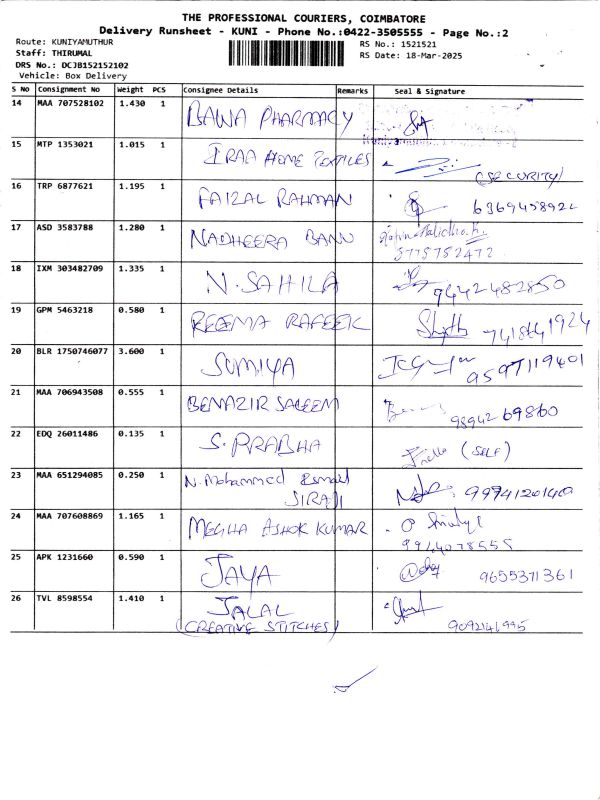 THE PROFESSIONAL COURIERS, COIMBATORE
Delivery Runsheet - KUNI - Phone No.:0422-3505555 - Page No.:2
Route: KUNIYAMUTHUR
RS No.: 1521521
Staff: THIRUMAL
RS Date: 18-Mar-2025
DRS No.: DCJB152152102
Vehicle: Box Delivery
S No Consignment No Weight PCS Consignee Details Remarks Seal & Signature
14 MAA 707528102 1.430 1 BAWA PHARMACY
15 MTP 1353021 1.015 1 IRAA HOME TEXTILES (SECURITY)
16 TRP 6877621 1.195 1 FAIZAL RAHMAN 6369458922
17 ASD 3583788 1.280 1 NADHEERA BANU
18 IXM 303482709 1.335 1 N.SAHILA 9442482850
19 GPM 5463218 0.580 1 REEMA RAFEEK
20 BLR 1750746077 3.600 1 SUMIYA 9597119401
21 MAA 706943508 0.555 1 BENAZIR SALEEM 9894269860
22 EDQ 26011486 0.135 1 S.PRABHA (SELF)
23 MAA 651294085 0.250 1 N.Mohammed Esmail
SIRAJI
24 MAA 707608869 1.165 1 MEGHA ASHOK KUMAR
9914078555
25 APK 1231660 0.590 1 JAYA 9655371361
26 TVL 8598554 1.410 1 JALAL
(CREATIVE STITCHES) 9092141995